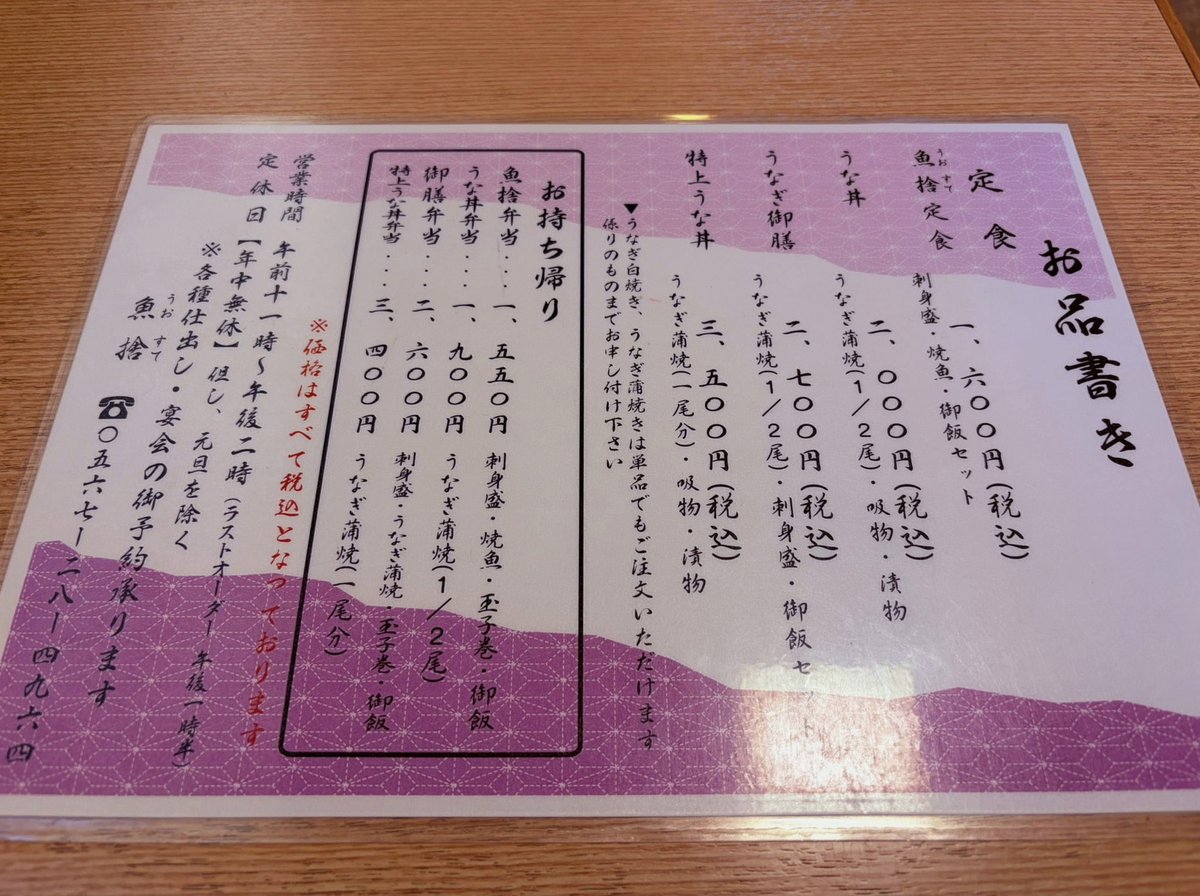 お品書き
定食
魚捨定食
うおすて
一、六〇〇円(税込)
刺身盛・焼魚・御飯セット
うな丼
二、〇〇〇円(税込)
うなぎ蒲焼(1/2尾)・吸物・漬物
うなぎ御膳
二、七〇〇円(税込)
うなぎ蒲焼(1/2尾)・刺身盛・御飯セット
特上うな丼
三、五〇〇円(税込)
うなぎ蒲焼(一尾分)・吸物・漬物
▼うなぎ白焼き、うなぎ蒲焼きは単品でもご注文いただけます
係りのものまでお申し付け下さい
お持ち帰り
魚捨弁当・・・・一、五五〇円 刺身盛・焼魚・玉子巻・御飯
うな丼弁当・・・一、九〇〇円 うなぎ蒲焼(1/2尾)
御膳弁当・・・・二、六〇〇円 刺身盛・うなぎ蒲焼・玉子巻・御飯
特上うな丼弁当・・三、四〇〇円 うなぎ蒲焼(一尾分)
※価格はすべて税込となっております
営業時間 午前十一時～午後二時(ラストオーダー 午後一時半)
定休日【年中無休】但し、元旦を除く
※各種仕出し・宴会の御予約承ります
魚捨
うおすて
☎〇五六七ー二八ー四九六四